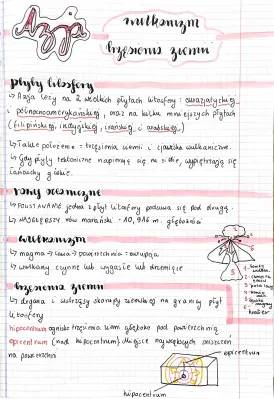 Azja
wulkanizm
trzęsienia ziemi
płyty litosfery
↳ Azja leży na 2 wielkich płytach litosfery: euroazjatyckiej
i północnoamerykańskiej, oraz na kilku mniejszych płytach
(filipińskiej, indyjskiej, irańskiej i arabskiej.)
↳ Takie położenie = trzęsienia ziemi i zjawiska wulkaniczne.
↳ Gdy płyty tektoniczne napierają się na siebie, wypiętrzają się
łańcuchy górskie.
rowy oceaniczne
↳ POWSTAWANIE jedna z płyt litosfery podsuwa się pod drugą.
↳ NAJGŁĘBSZY rów mariański -
wulkanizm
↳ magma → lawa → powierzchnia = erupcja
↳ wulkany czynne lub wygasłe lub drzemiące
trzęsienia ziemi
↳ drgania i wstrząsy skorupy ziemskiej na granicy płyt
litosfery
hipocentrum ognisko trzęsienia ziemi głęboko pod powierzchnią
epicentrum (nad hipocentrum) miejsce największych zniszczeń
na powierzchni
krater
epicentrum
hipocentrum